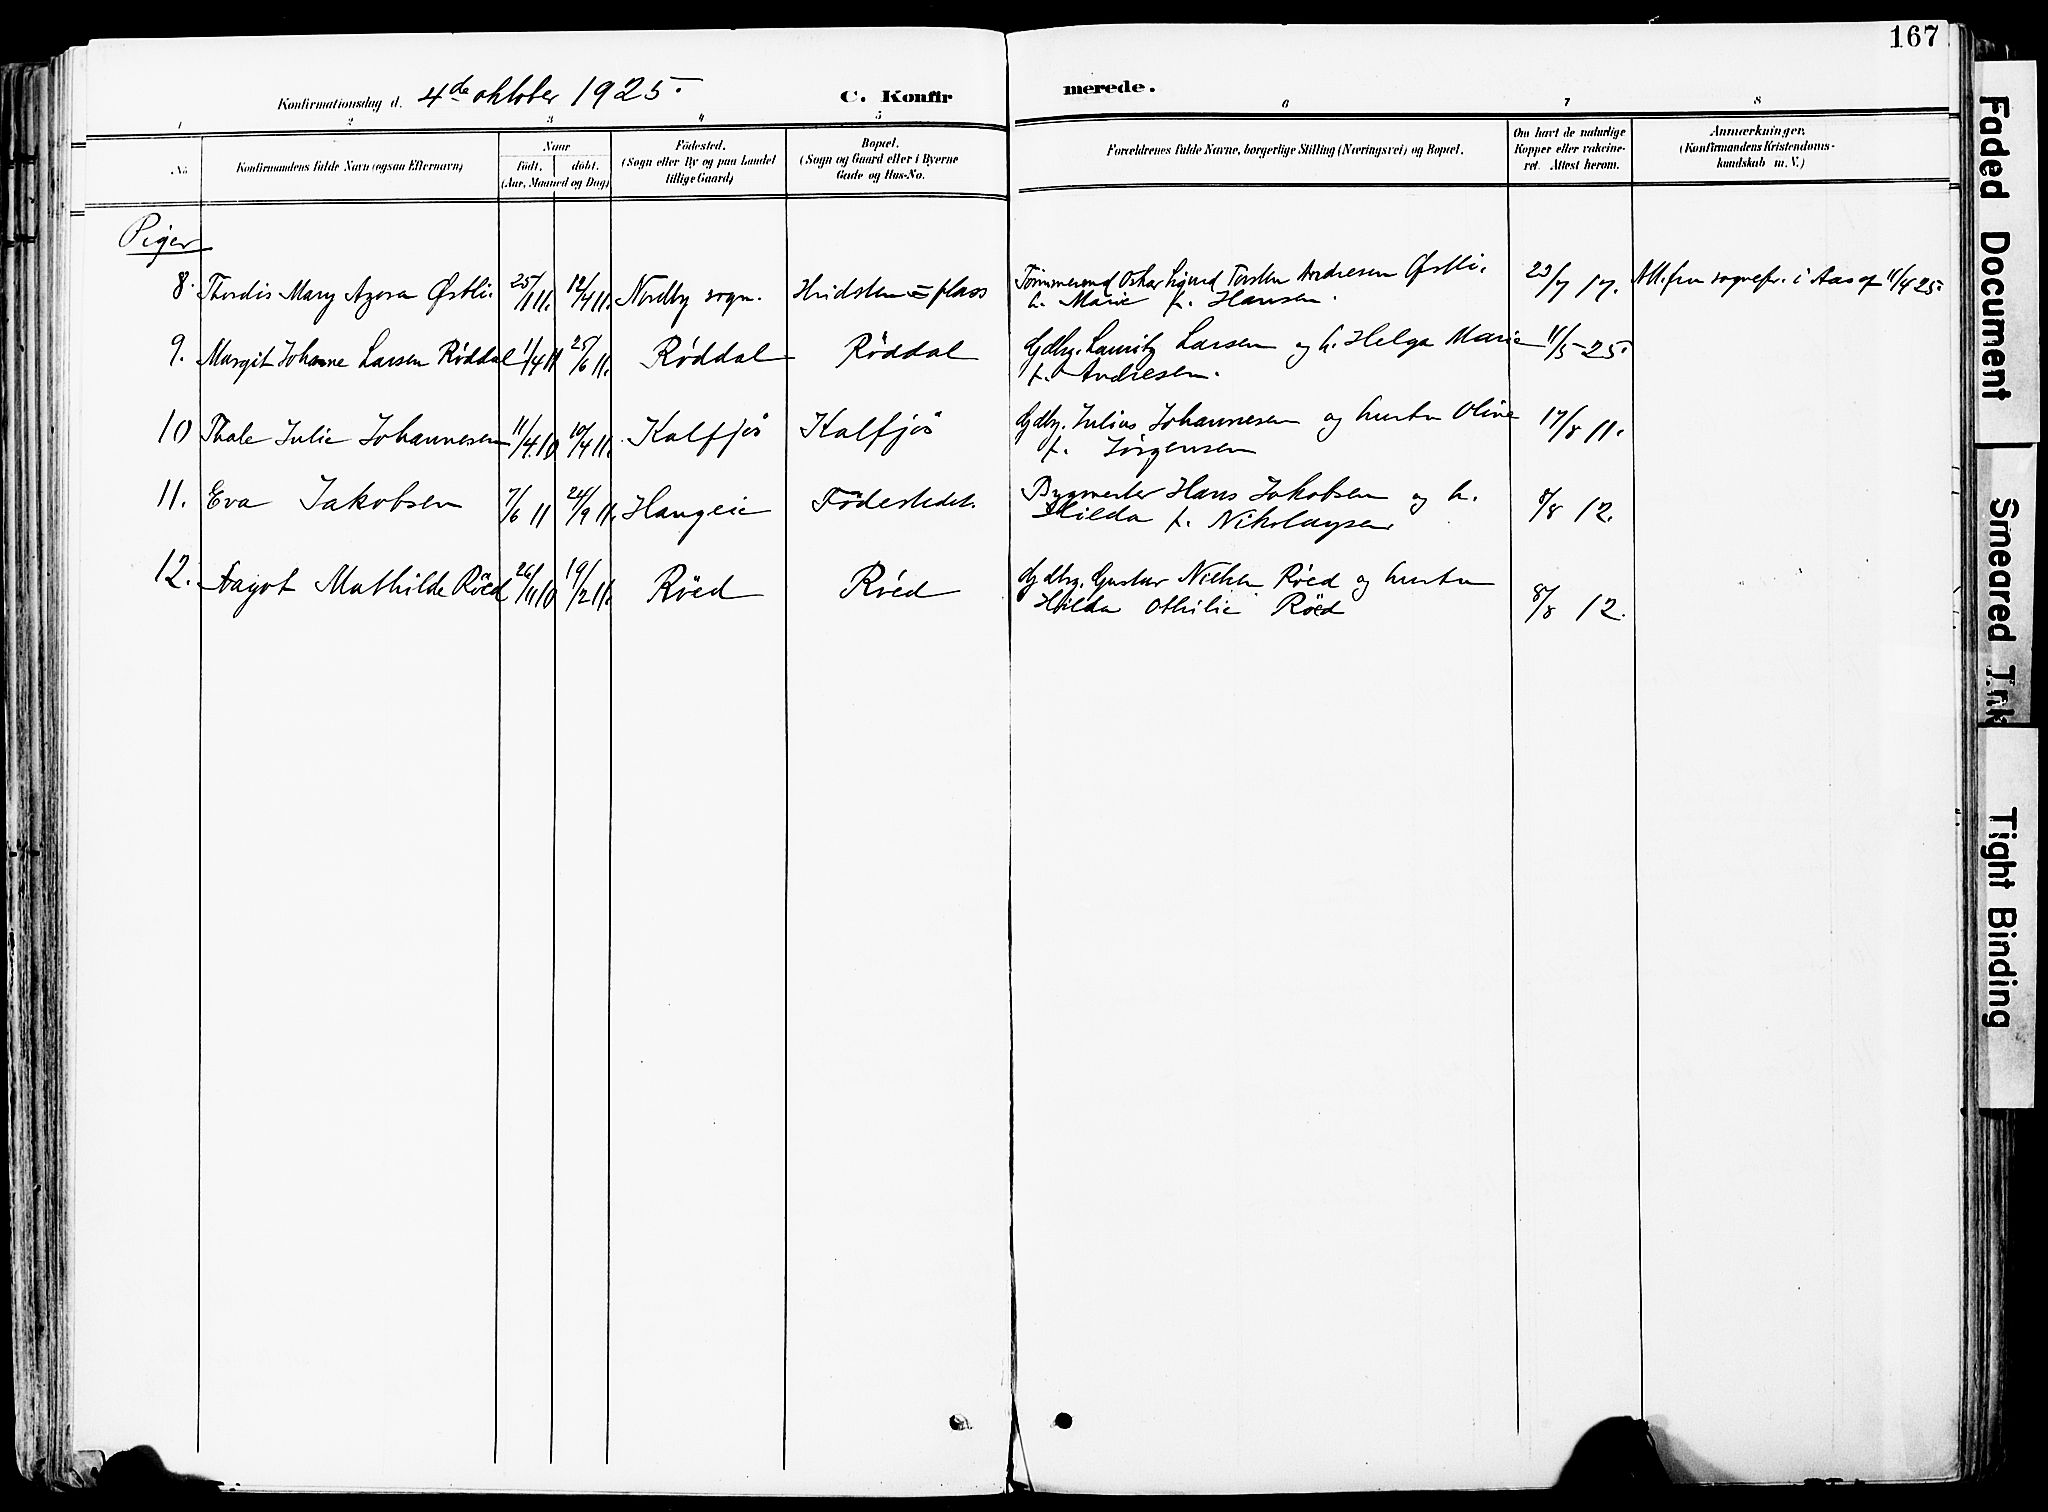 167
Konfirmationsdag d. 4de oktober 1925.
C. Konfirmerede.
1 2 3 4 5 6 7 8
No.
Konfirmandens fulde Navn (ogsaa Efternavn)
Naar
født. døbt.
(Aar, Maaned og Dag)
Fødested.
(Sogn eller By og paa Landet
tillige Gaard)
Bopæl.
(Sogn og Gaard eller i Byerne
Gade og Hus-No.
Forældrenes fulde Navne, borgerlige Stilling (Næringsvei) og Bopæl.
Om havt de naturlige
Kopper eller vakcine-
ret. Attest herom.
Anmærkninger.
(Konfirmandens Kristendoms-
kundskab m. V.)
Piger
8. Thordis Mary Azora Østli. 25/1 11. 12/4 11. Nordby sogn. Hvidsten = plass Tømmermd Oskar Sigurd Torsten Andresen Østli. 23/7 17. Att. fra sognepr. i Aas af 11/4 25.
h. Marie f. Hansen.
9. Margit Johanne Larsen Røddal 11/4 11 25/6 11. Røddal Røddal Gdbr. Lauritz Larsen og h. Helga Marie 11/5 25.
f. Andresen.
10 Thale Julie Johannesen 11/4.10 10/4 11. Kalfjøs Kalfjøs Gdbr. Julius Johannesen og hustru Oline 17/8 11.
f. Jørgensen
11. Eva Jakobsen 7/6 11 24/9 11. Haugeie Fødestedet. Bygmester Hans Jakobsen og h. 8/8 12.
Hilda f. Nikolaysen
12. Dagot Mathilde Røed 26/11 10 19/2 11. Røed Røed Gdbr. Gustav Nielsen Røed og hustru
Hilda Othilie Røed 8/8 12.
Faded Document
Smeared Ink
Tight Binding